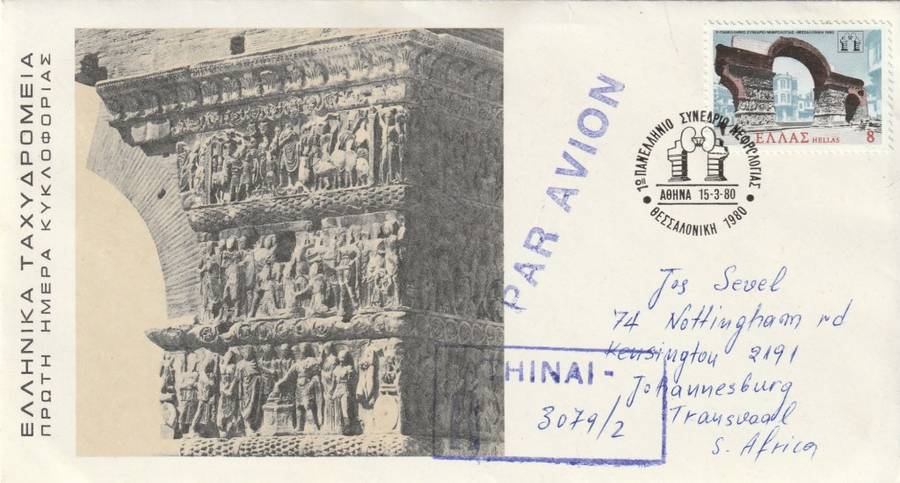 ΕΛΛΗΝΙΚΑ ΤΑΧΥΔΡΟΜΕΙΑ
ΠΡΩΤΗ ΗΜΕΡΑ ΚΥΚΛΟΦΟΡΙΑΣ
PAR AVION
ΕΛΛΑΣ HELLAS 8
1ο ΠΑΝΕΛΛΗΝΙΟ ΣΥΝΕΔΡΙΟ ΝΕΦΡΟΛΟΓΙΑΣ
ΑΘΗΝΑ 15-3-80
ΘΕΣΣΑΛΟΝΙΚΗ 1980
Jos Sevel
74 Nottingham rd
Kensington 2191
Johannesburg
Transvaal
S. Africa
HINAI -
3079/2